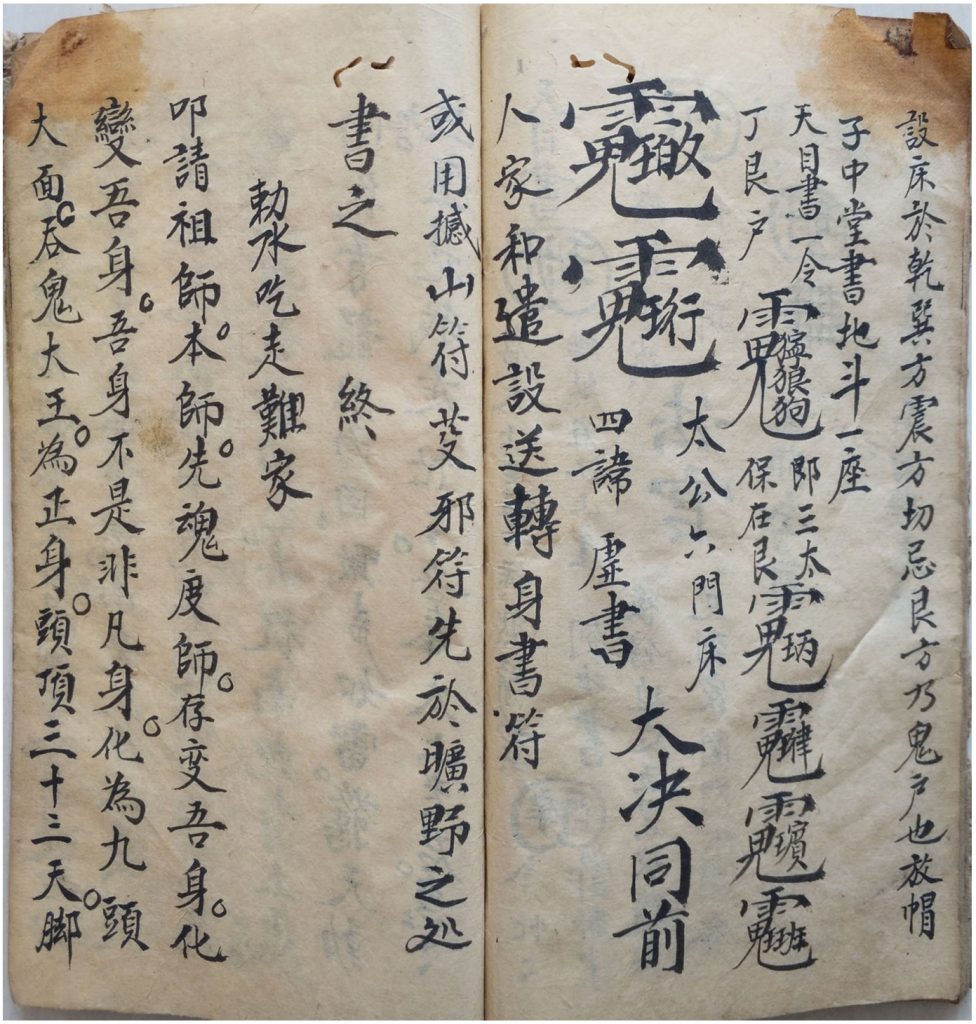 設床於乾巽方震方切忌艮方乃鬼户也放帽
子中堂書地斗一座
天目書一令 即三太
丁艮户 保在艮
太公六門床 大决同前
四諦 虚書
人家和遣設送轉身書符
或用撼山符 邪符先於曠野之処
書之 終
勅水吃走難家
叩請祖師。本師。先魂度師。存变吾身。化
變吾身。吾身不是非凡身。化為九頭
大面。吞鬼大王。為正身。頭頂三十三天。脚